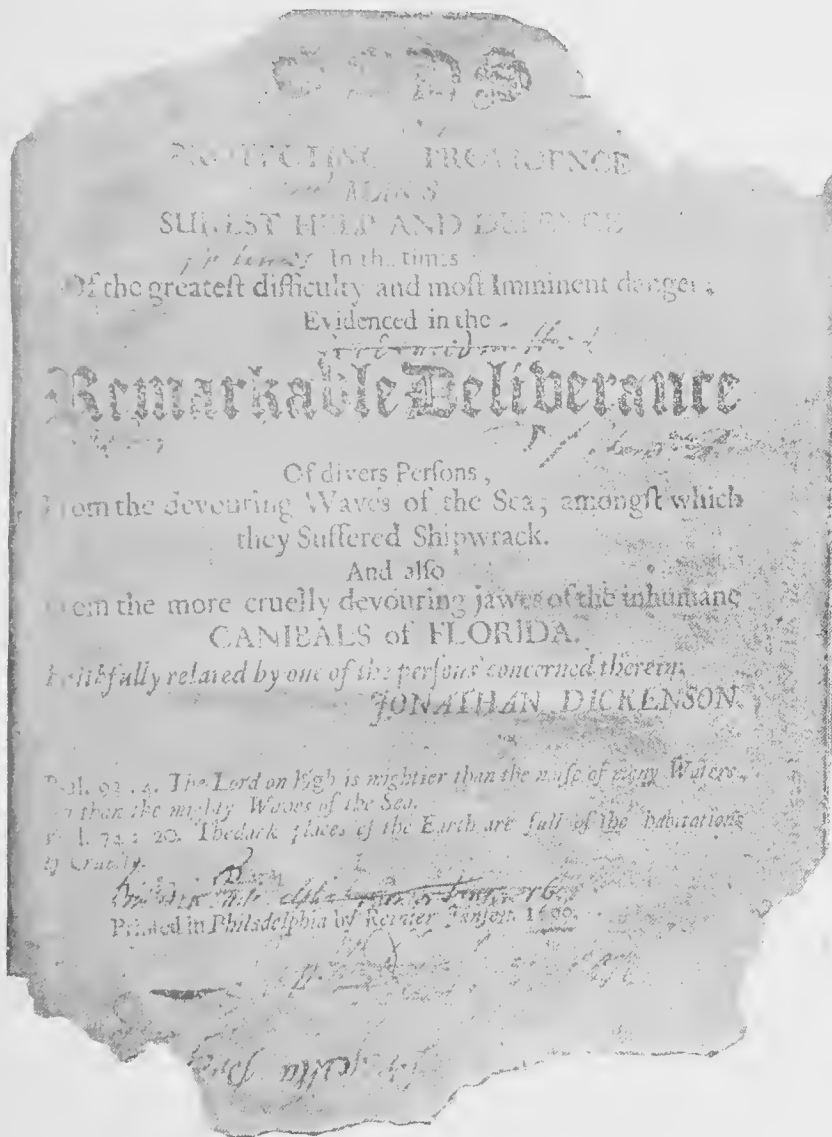 GODS
PROTECTING PROVIDENCE
MAN'S
SUREST HELP AND DEFENCE
In the times
Of the greateſt difficulty and moſt Imminent danger;
Evidenced in the
Remarkable Deliverance
Of divers Perſons,
From the devouring Waves of the Sea; amongſt which
they Suffered Shipwrack.
And alſo
From the more cruelly devouring jawes of the inhumane
CANIBALS of FLORIDA.
Faithfully related by one of the perſons concerned therein;
JONATHAN DICKENSON.
Pſal. 93 : 4. The Lord on High is mightier than the noiſe of many Waters,
than the mighty Waves of the Sea.
Pſal. 74 : 20. The dark places of the Earth are full of the habitations
of Cruelty.
Printed in Philadelphia by Reinier Janſen. 1699.